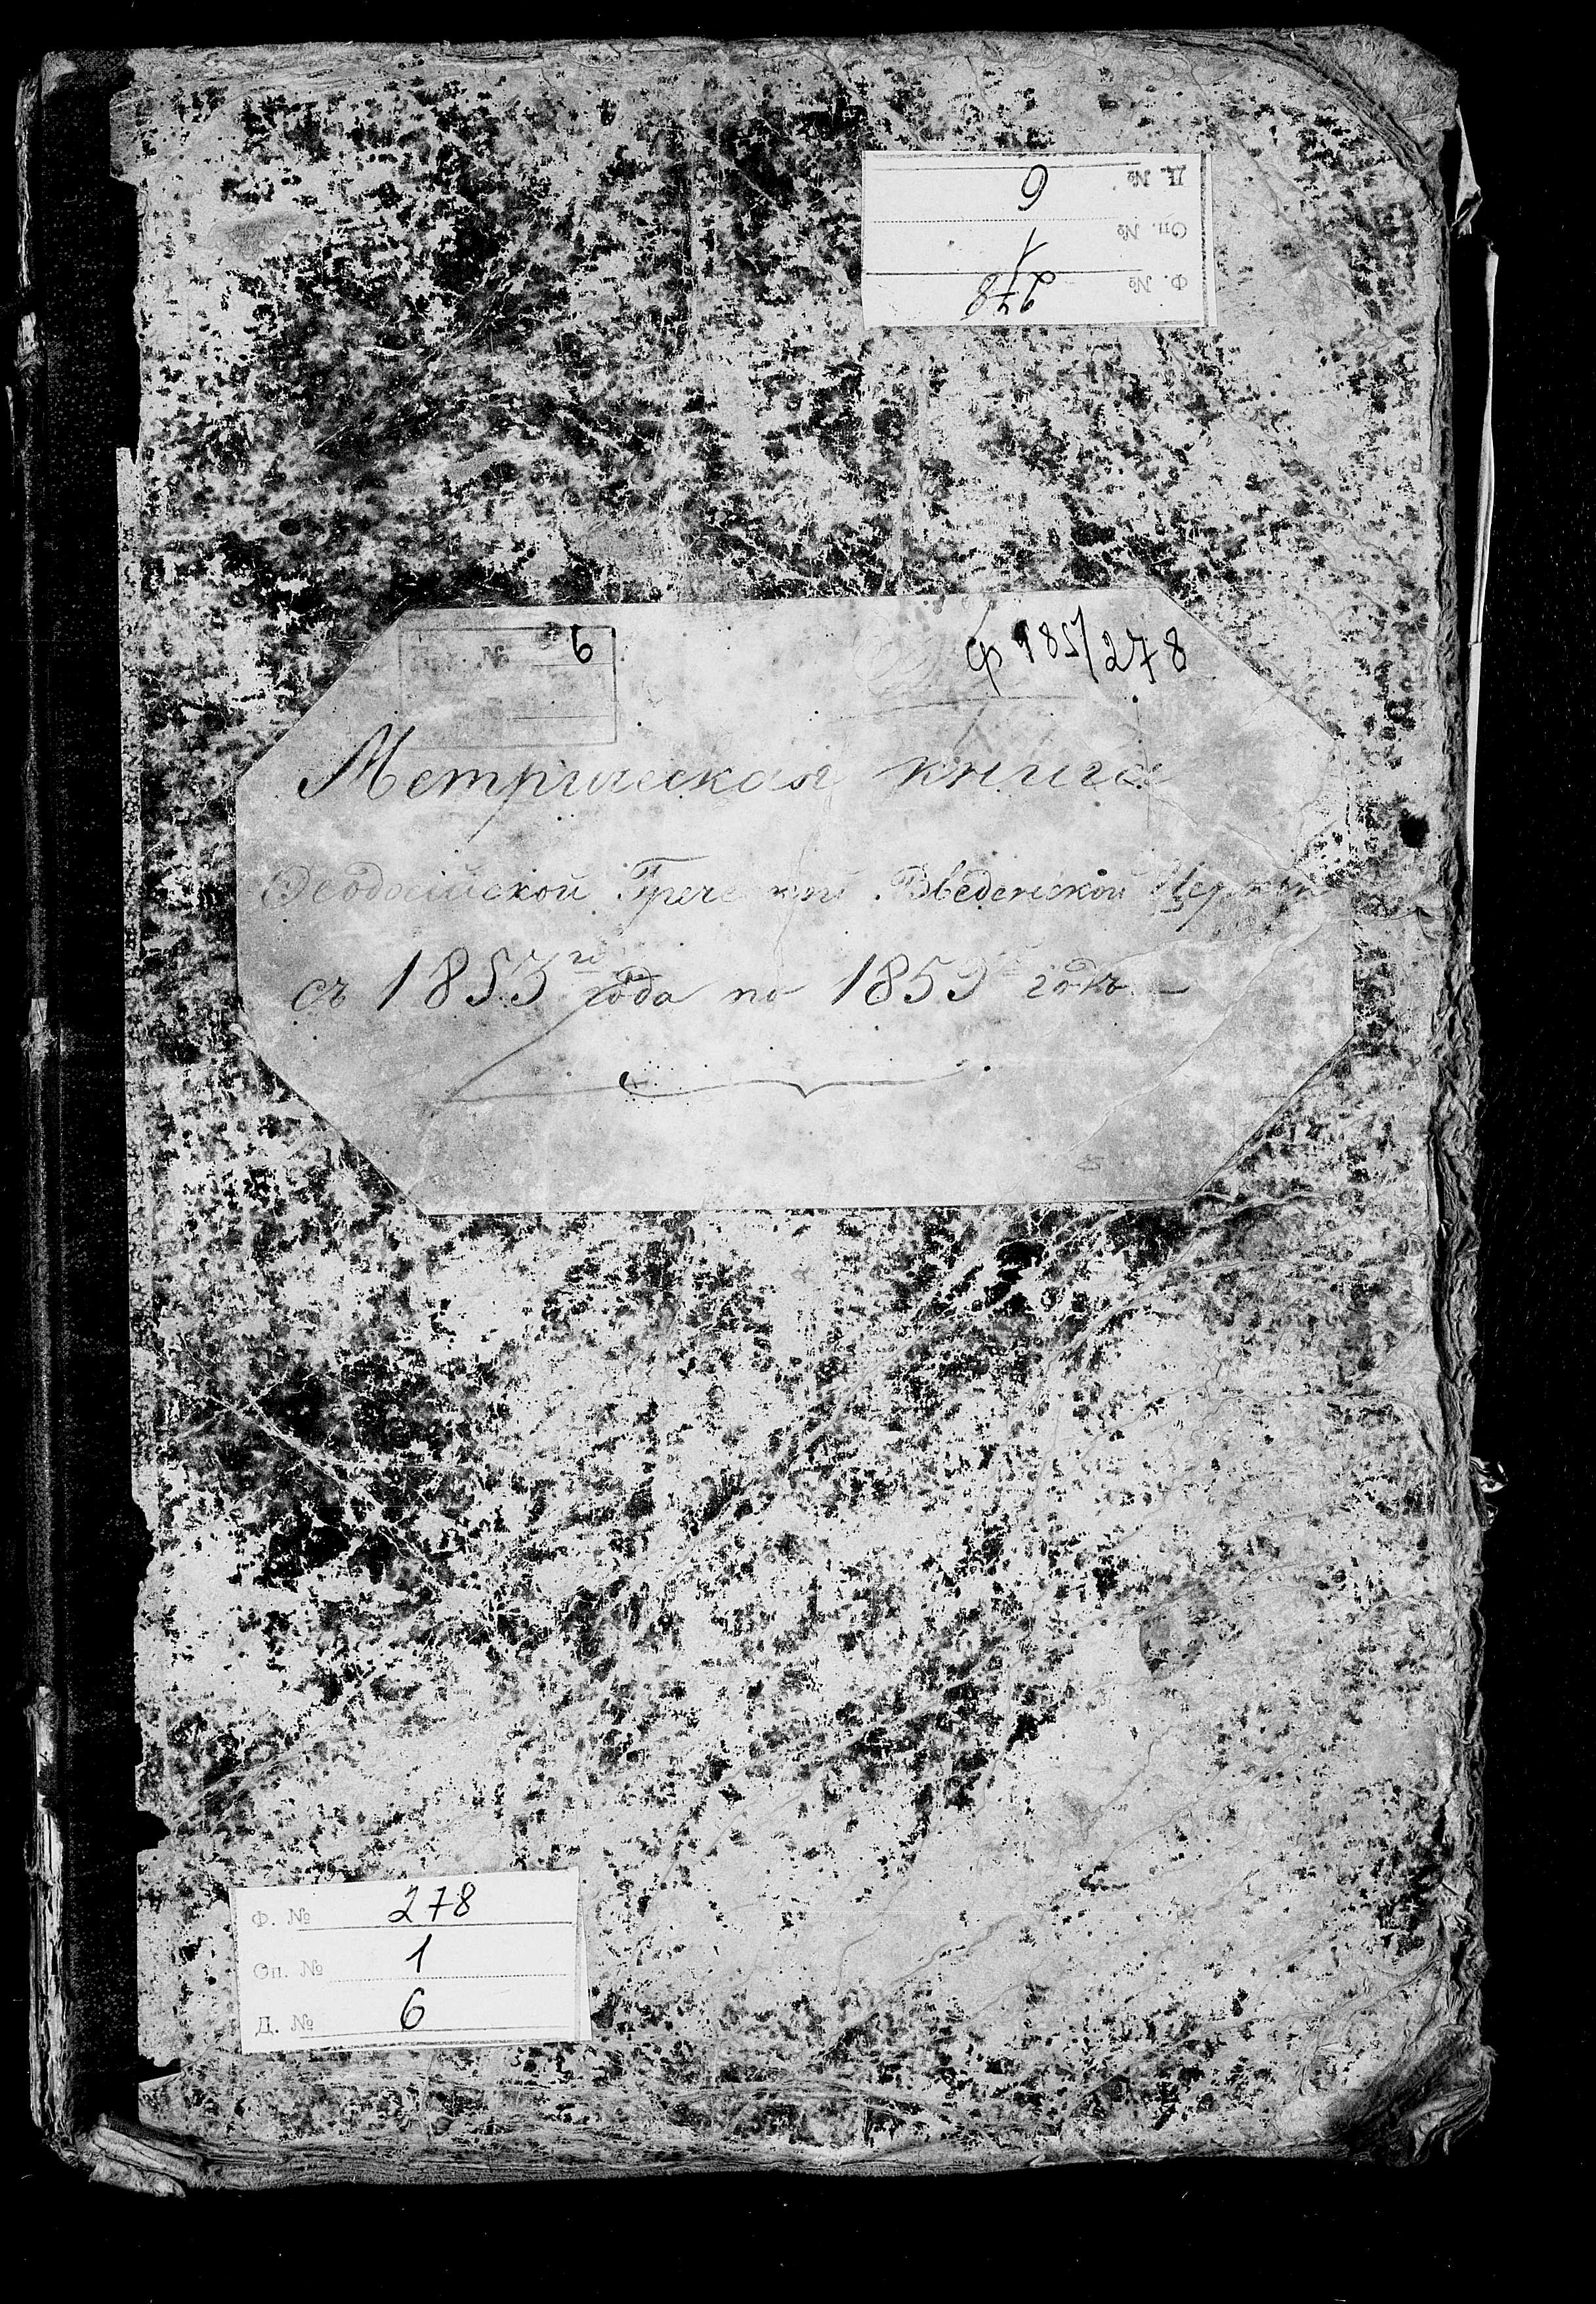 Д. № 6
Оп. № 1
Ф. № 278
№ 6
ф 985/278
Метрическая книга
Ѳеодосійской Греческой Введенской Церкви
съ 1853го года по 1859 годъ
Ф. № 278
Оп. № 1
Д. № 6